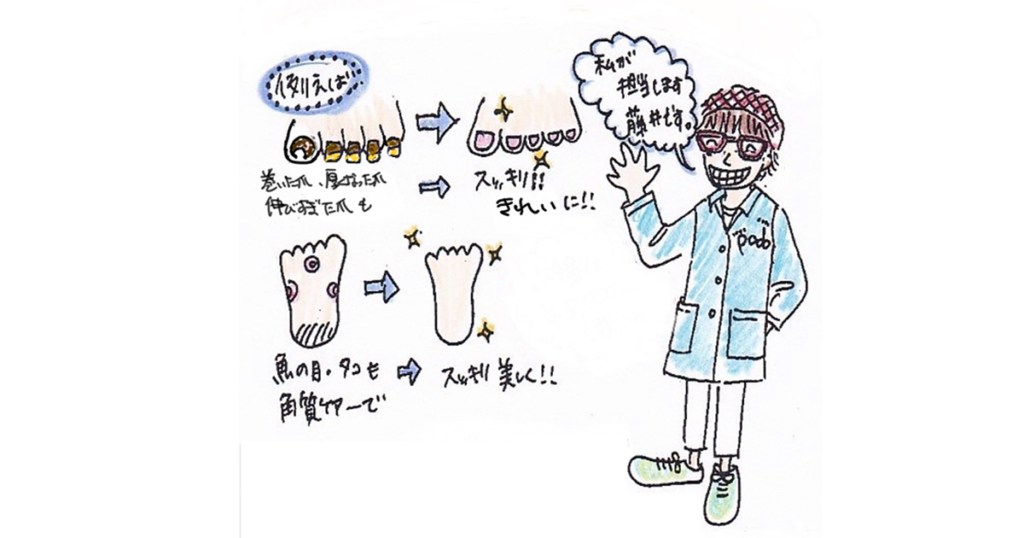 例えば
私が
担当します
藤井です。
巻いた爪、厚くなった爪
伸びすぎた爪も
スッキリ!!
きれいに!!
podo
魚の目・タコも
角質ケアーで
スッキリ 美しく!!